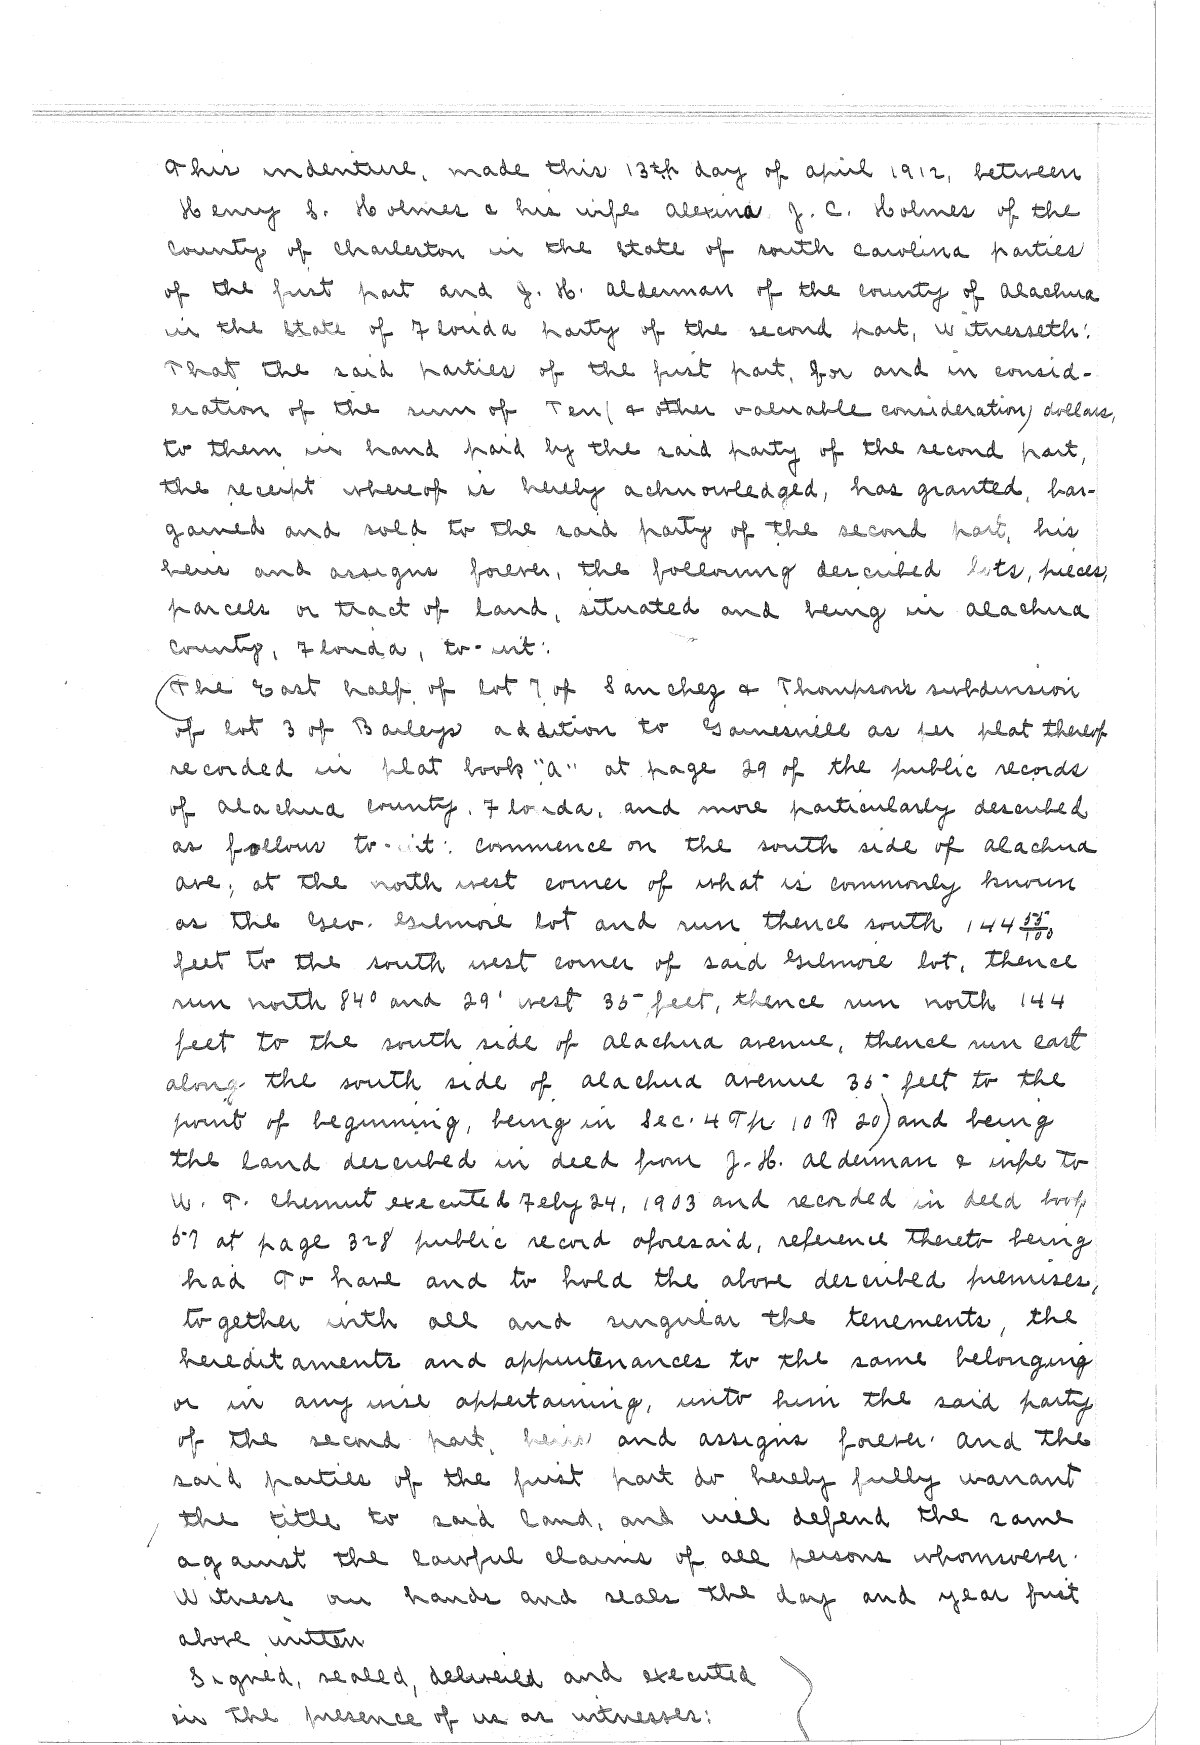 This indenture, made this 13th day of april 1912, between
Henry S. Holmes & his wife Alexina J. C. Holmes of the
County of Charleston in the State of South Carolina parties
of the first part and J. H. Alderman of the County of Alachua
in the State of Florida party of the second part, Witnesseth:
That the said parties of the first part, for and in consid-
eration of the sum of Ten (& other valuable consideration) dollars,
to them in hand paid by the said party of the second part,
the receipt whereof is hereby acknowledged, has granted, bar-
gained and sold to the said party of the second part, his
heirs and assigns forever, the following described lots, pieces,
parcels or tract of land, situated and being in Alachua
County, Florida, to-wit:
(The East half of lot 7 of Sanchez & Thompson's subdivision
of lot 3 of Baileys addition to Gainesville as per plat thereof
recorded in plat book "A" at page 29 of the public records
of Alachua County, Florida, and more particularly described
as follows to-wit: Commence on the south side of Alachua
ave, at the north west corner of what is commonly known
as the Geo. Gilmore lot and run thence south 144 55/100
feet to the south west corner of said Gilmore lot, thence
run north 84° and 29' west 35 feet, thence run north 144
feet to the south side of Alachua avenue, thence run east
along the south side of Alachua avenue 35 feet to the
point of beginning, being in Sec. 4 Tp 10 R 20) and being
the land described in deed from J. H. Alderman & wife to
W. T. Chesnut executed Feby 24, 1903 and recorded in deed book
57 at page 328 public record aforesaid, reference thereto being
had To have and to hold the above described premises,
together with all and singular the tenements, the
hereditaments and appurtenances to the same belonging
or in any wise appertaining, unto him the said party
of the second part, heirs and assigns forever. And the
said parties of the first part do hereby fully warrant
the title to said land, and will defend the same
against the lawful claims of all persons whomsoever.
Witness our hands and seals the day and year first
above written
Signed, sealed, delivered and executed
in the presence of us as witnesses: